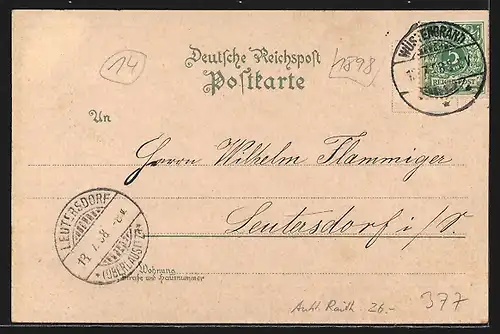 14
Deutsche Reichspost
Postkarte
1898
WÜSTENBRAND
REICHSPOST
An
Herrn Wilhelm Flammiger
Leutersdorf i/S.
LEUTERSDORF
18.7.98
(OBERLAUSITZ)
Wohnung
Straße und Hausnummer
26.-
377